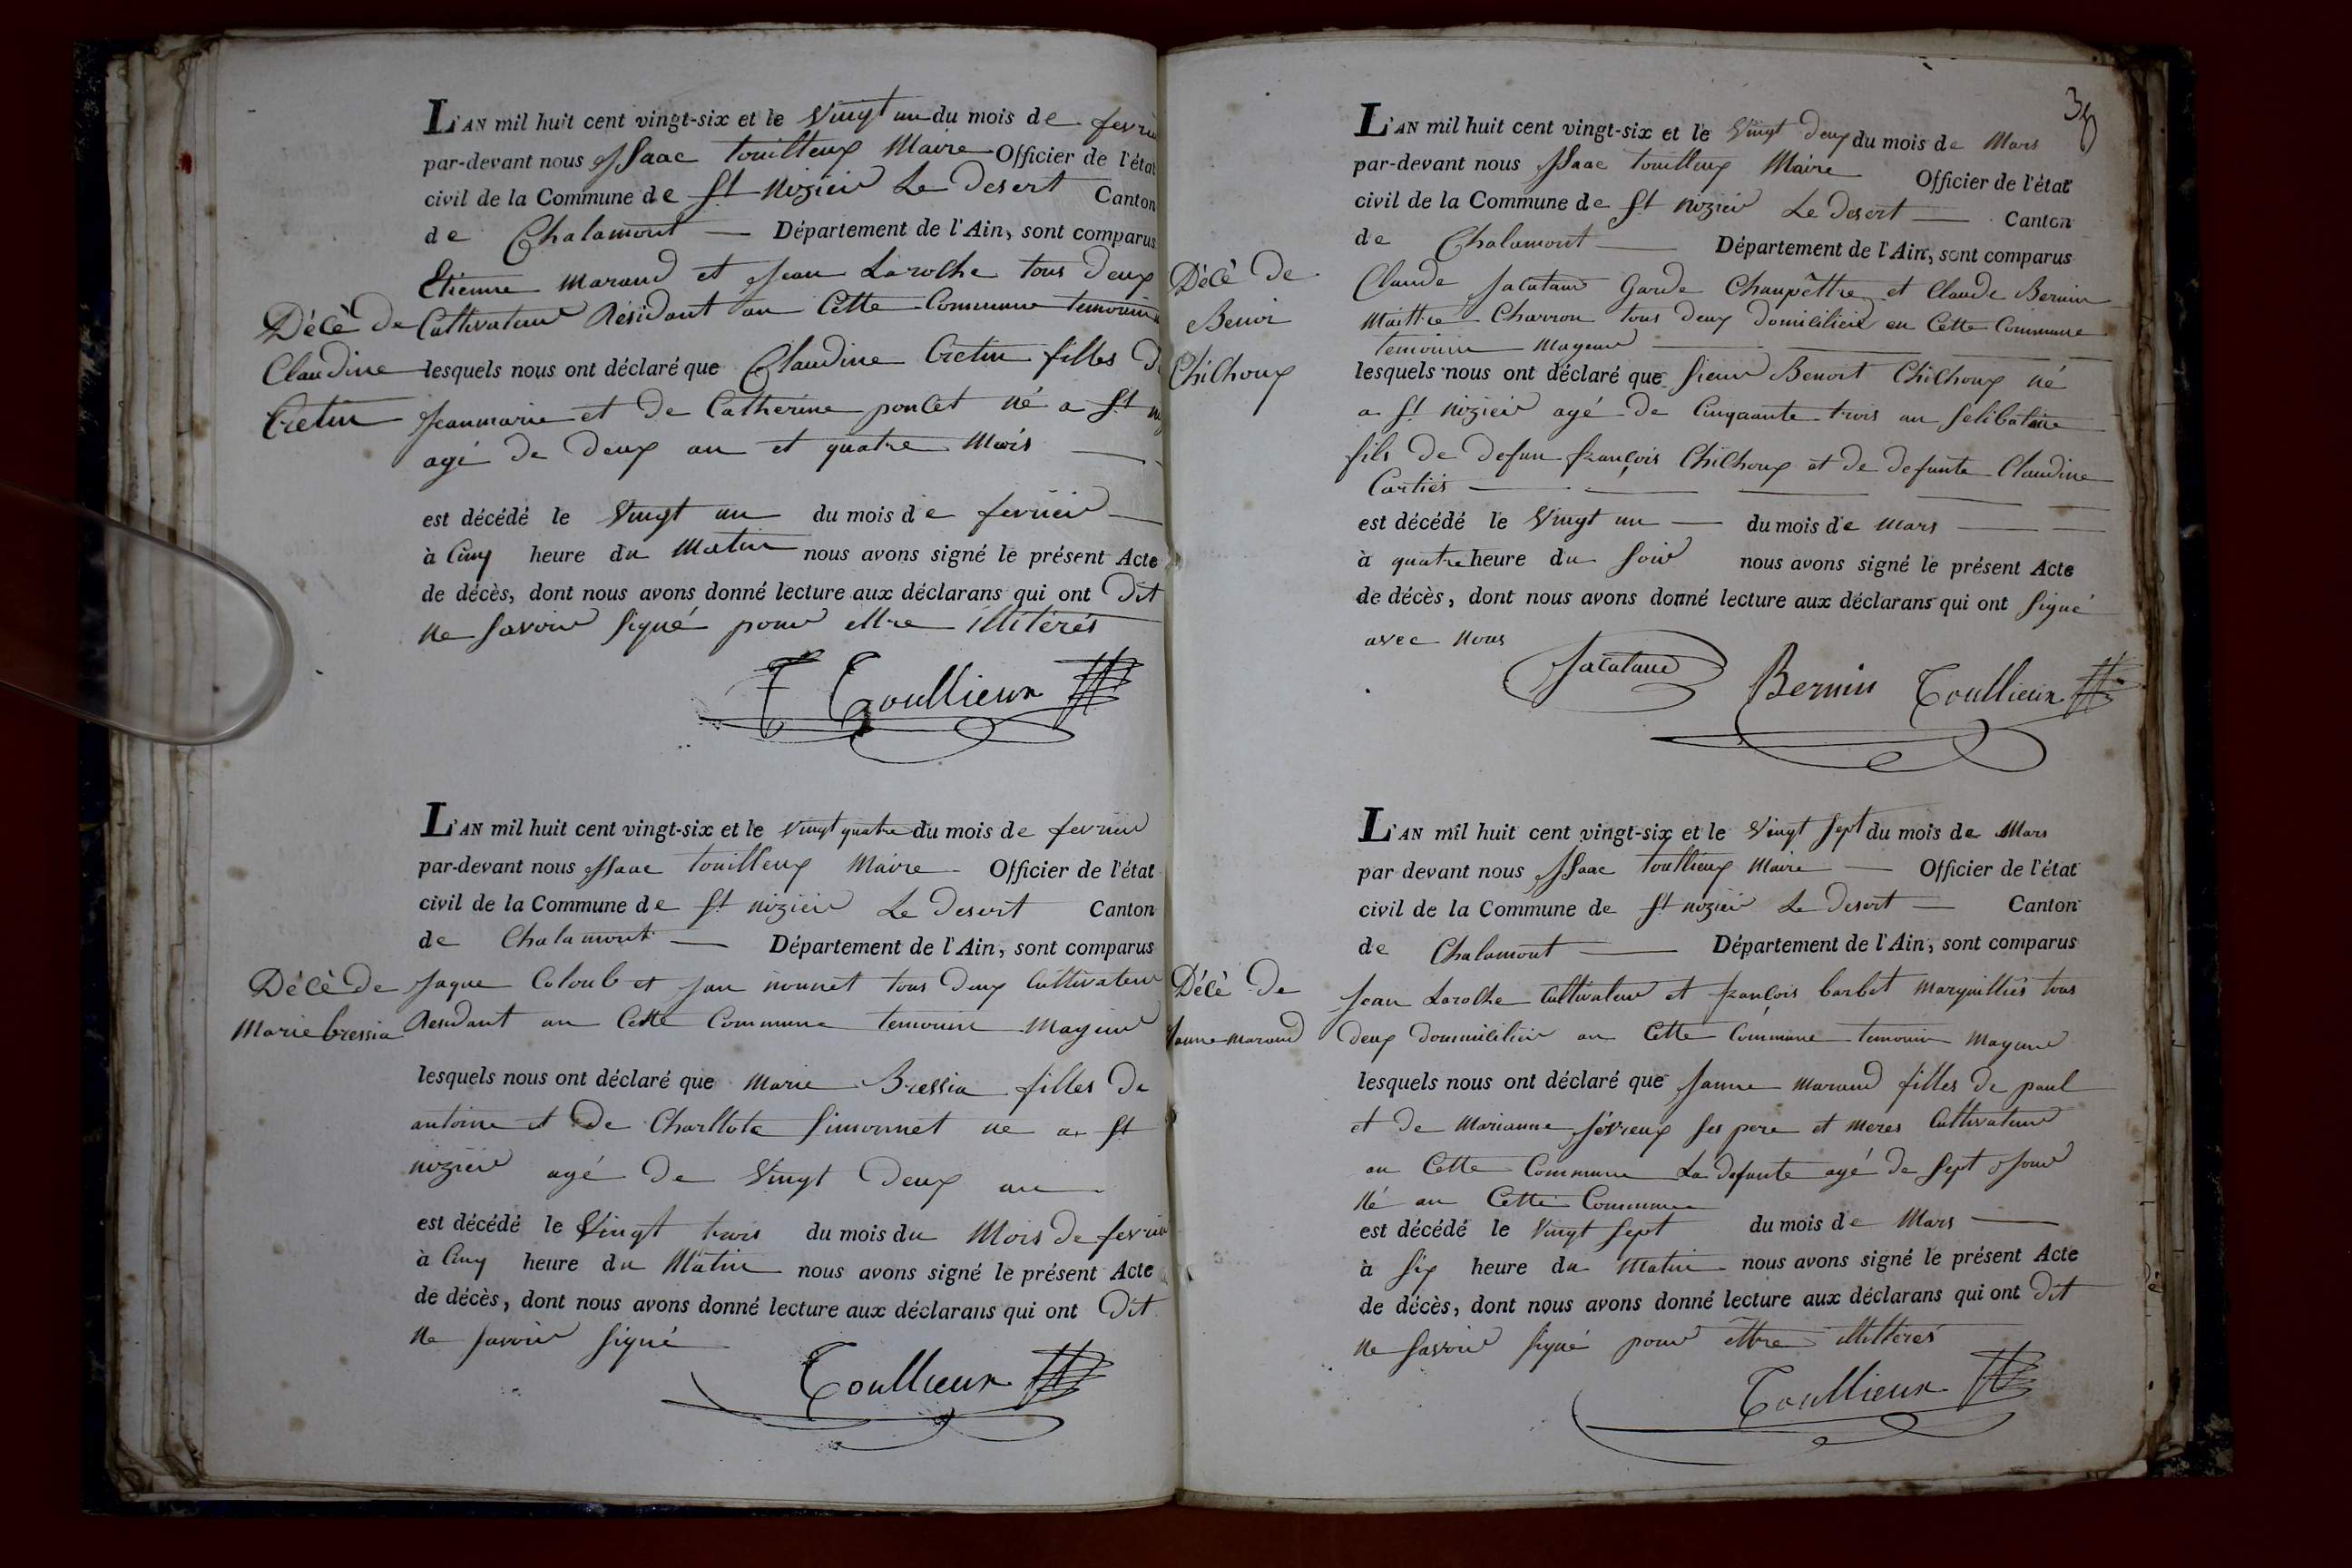 L'AN mil huit cent vingt-six et le Vingt un du mois de fevrie
par-devant nous Isaac touilleux Maire Officier de l'état
civil de la Commune de St nizier Le Desert Canton
de Chalamont — Département de l'Ain, sont comparus
Etienne Marand et Jean Laroche tous deux
Cultivateur Résidant an Cette Commune temoin
Décè de
Claudine
Cretin
lesquels nous ont déclaré que Claudine Cretin filles d
Jeanmarie et de Catherine poncet né a St
agé de deux an et quatre Mois
est décédé le Vingt un du mois de fevrier
à Cinq heure du Matin nous avons signé le présent Acte
de décès, dont nous avons donné lecture aux déclarans qui ont Dit
ne savoir signé pour ettre illitérés
Toullieux
L'AN mil huit cent vingt-six et le vingt quatre du mois de fevrier
par-devant nous Isaac touilleux Maire Officier de l'état
civil de la Commune de St nizier Le Desert Canton
de Chalamont — Département de l'Ain, sont comparus
Décè de
Marie bressia
Jaque Colomb et Jean monnet tous deux Cultivateur
Residant an Cette Commune temoin Mageur
lesquels nous ont déclaré que Marie Bressia filles de
antoine et de Charllote Simonnet né a St
nizier agé de Vingt deux an
est décédé le Vingt trois du mois du Mois de fevrier
à Cinq heure du Matin nous avons signé le présent Acte
de décès, dont nous avons donné lecture aux déclarans qui ont Dit
ne savoir signé
Toullieux
L'AN mil huit cent vingt-six et le Vingt deux du mois de Mars
par-devant nous Isaac touilleux Maire Officier de l'état
civil de la Commune de St nizier Le Desert — Canton
de Chalamont — Département de l'Ain, sont comparus
Décè de
Benoi
Chilhoux
Claude Jacutand Garde Champêttre et Claude Bernin
Maittre Charron tous deux Domicilier en Cette Commune
temoin Mageur
lesquels nous ont déclaré que sieur Benoit Chilhoux né
a St nizier agé de Cinquante trois an selibataire
fils de defun françois Chilhoux et de defunte Claudine
Carties
est décédé le Vingt un — du mois de Mars
à quatre heure du soir nous avons signé le présent Acte
de décès, dont nous avons donné lecture aux déclarans qui ont signé
avec nous
Jacutand Bernin Toullieux
L'AN mil huit cent vingt-six et le Vingt sept du mois de Mars
par devant nous Isaac toullieux Maire — Officier de l'état
civil de la Commune de St nizier Le Desert — Canton
de Chalamont — Département de l'Ain, sont comparus
Décè de
Janne Marand
Jean Laroche Cultivateur et françois barbet Marguilliés tous
deux dommicilier an Cette Commune temoin Mageur
lesquels nous ont déclaré que Janne Marand filles de paul
et de Marianne sévreux ses pere et meres Cultivateur
an Cette Commune La defunte agé de sept Jour
Né an Cette Commune
est décédé le Vingt sept du mois de Mars
à six heure du Matin nous avons signé le présent Acte
de décès, dont nous avons donné lecture aux déclarans qui ont Dit
ne savoir signé pour ettre illittérés
Toullieux